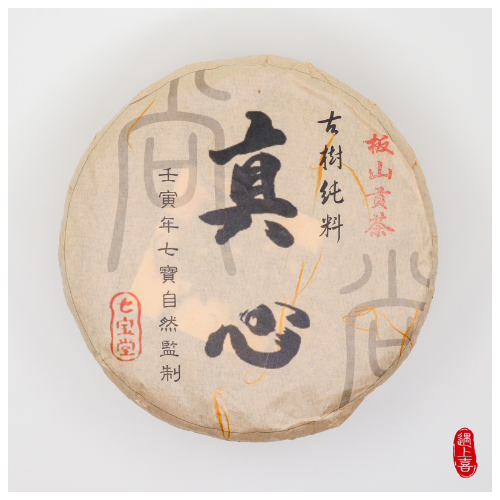 板山貢茶
古樹純料
真心
壬寅年七寶自然監制
七宝堂
遇上喜